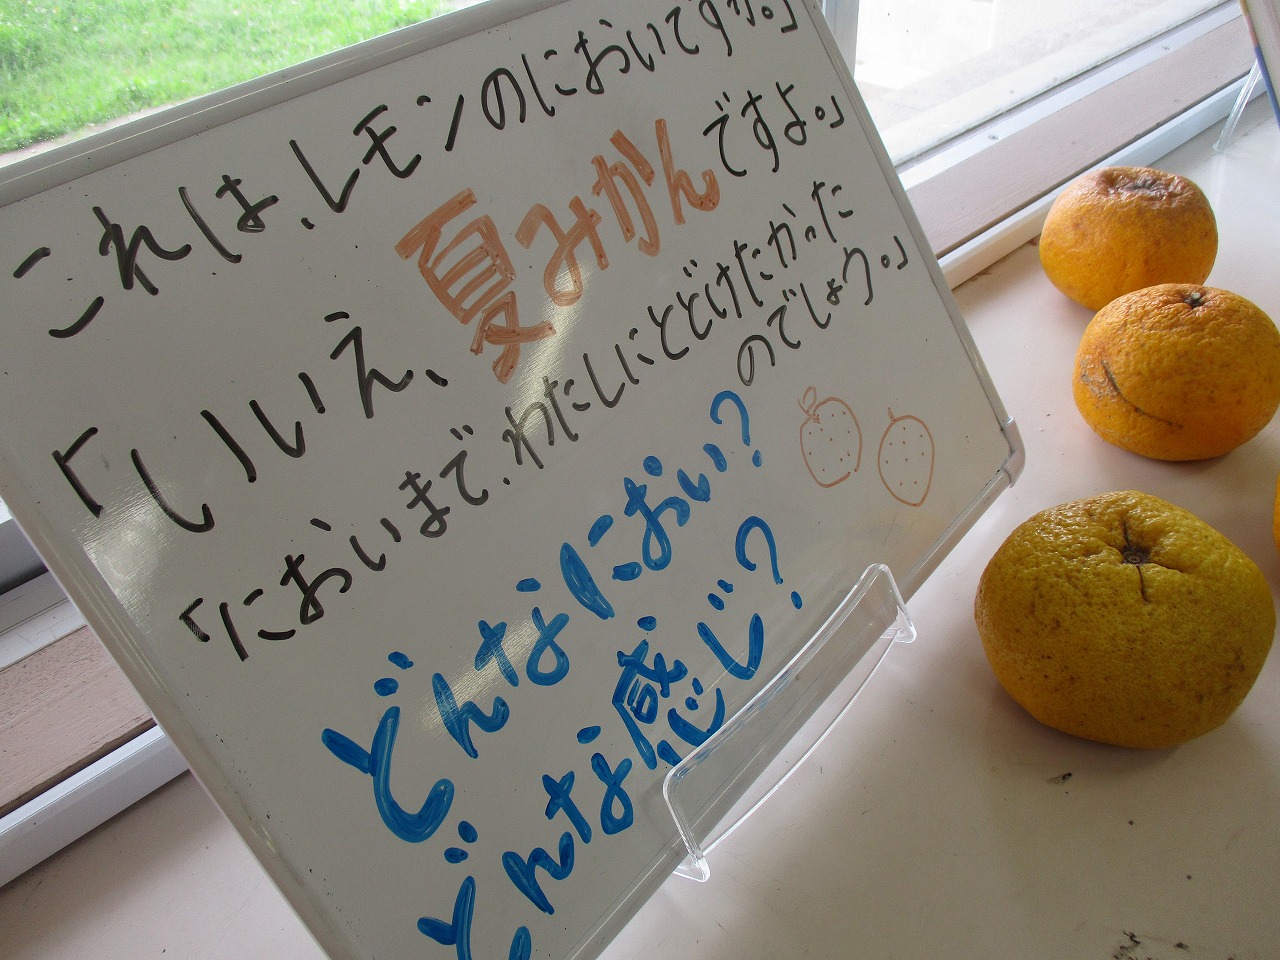 これは、レモンのにおいですか。」
「いいえ、夏みかんですよ。」
「においまで、わたしにとどけたかった
のでしょう。」
どんなにおい?
どんな感じ?